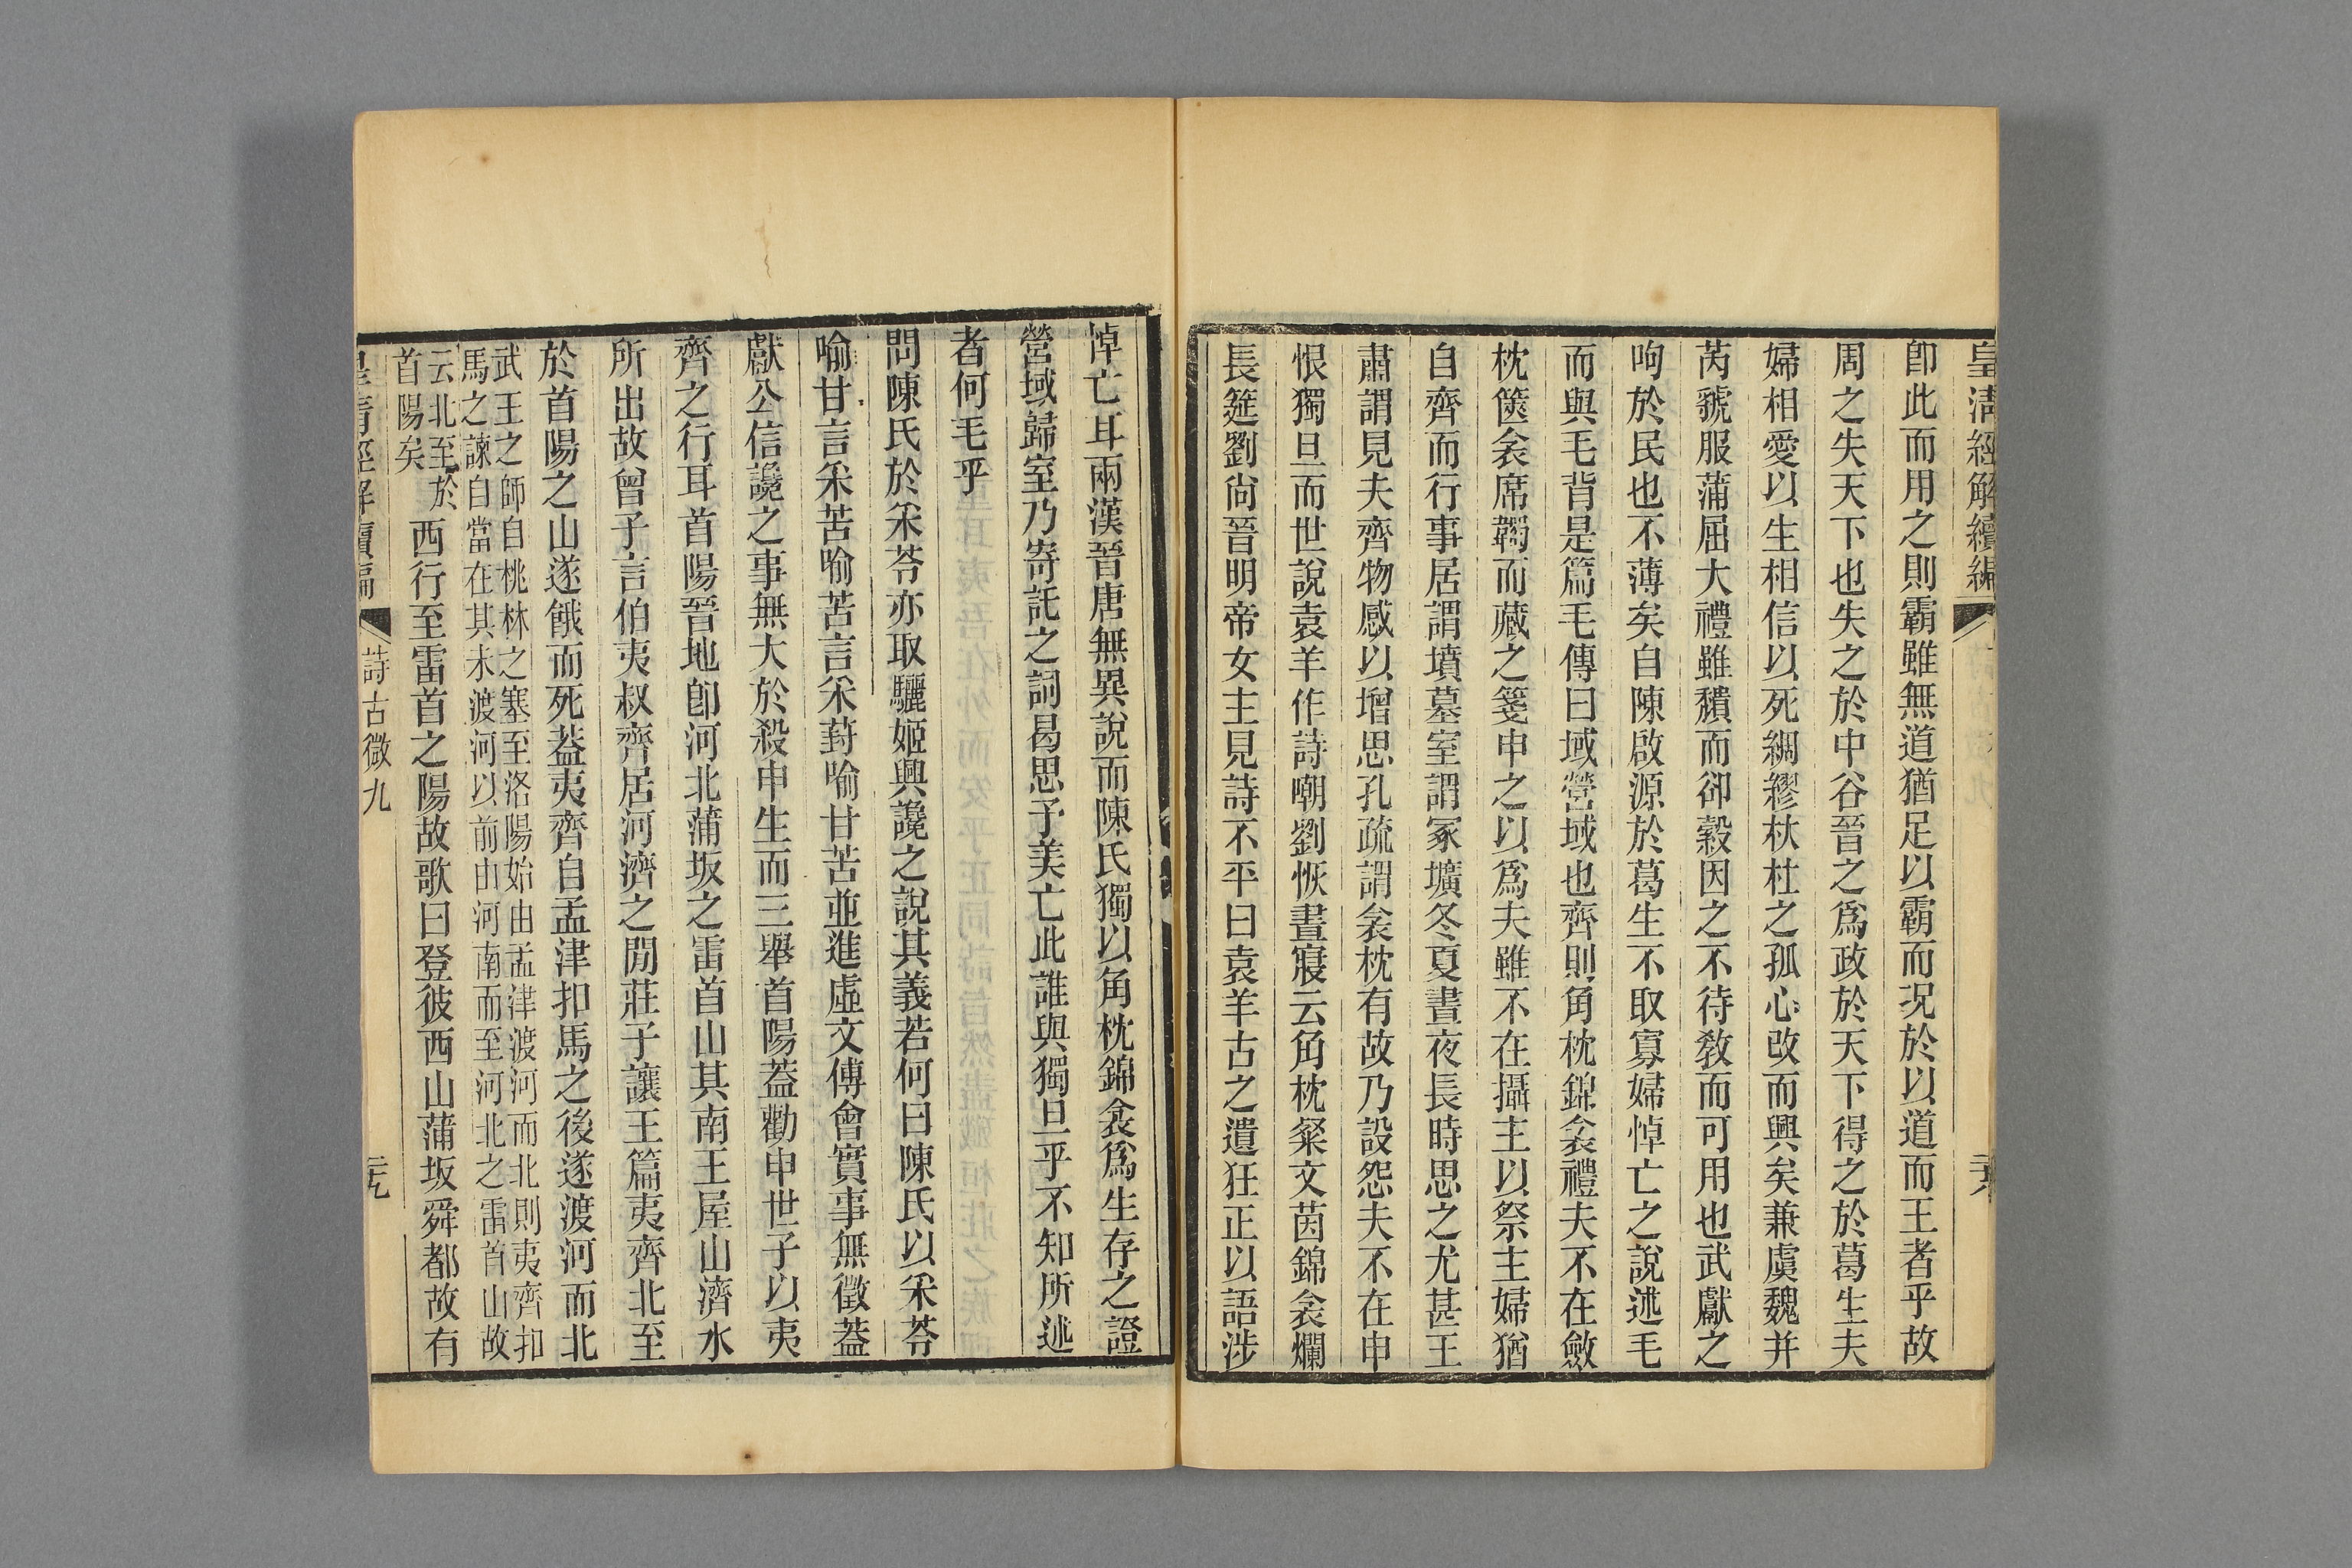 皇清經解續編
卽此而用之則霸雖無道猶足以霸而況於以道而王者乎故
周之失天下也失之於中谷晉之爲政於天下得之於葛生夫
婦相愛以生相信以死綢繆杕杜之孤心改而興矣兼虞魏并
芮虢服蒲屈大禮雖穨而卻縠因之不待敎而可用也武獻之
呴於民也不薄矣自陳啟源於葛生不取寡婦悼亡之說述毛
而與毛背是篇毛傳曰域營域也齊則角枕錦衾禮夫不在斂
枕篋衾席韣而藏之箋申之以爲夫雖不在攝主以祭主婦猶
自齊而行事居謂墳墓室謂冢壙冬夏晝夜長時思之尤甚王
肅謂見夫齊物感以增思孔疏謂衾枕有故乃設怨夫不在申
恨獨旦而世說袁羊作詩嘲劉恢晝寢云角枕粲文茵錦衾爛
長筵劉尙晉明帝女主見詩不平曰袁羊古之遺狂正以語涉
悼亡耳兩漢晉唐無異說而陳氏獨以角枕錦衾爲生存之證
營域歸室乃寄託之詞曷思予美亡此誰與獨旦乎不知所述
者何毛乎
問陳氏於采苓亦取驪姬興讒之說其義若何曰陳氏以采苓
喻甘言采苦喻苦言采葑喻甘苦並進虛文傅會實事無徵葢
獻公信讒之事無大於殺申生而三舉首陽葢勸申世子以夷
齊之行耳首陽晉地卽河北蒲坂之雷首山其南王屋山濟水
所出故曾子言伯夷叔齊居河濟之閒莊子讓王篇夷齊北至
於首陽之山遂餓而死葢夷齊自孟津扣馬之後遂渡河而北
武王之師自桃林之塞至洛陽始由孟津渡河而北則夷齊扣
馬之諫自當在其未渡河以前由河南而至河北之雷首山故
云北至於
首陽矣
西行至雷首之陽故歌曰登彼西山蒲坂舜都故有
詩古微九